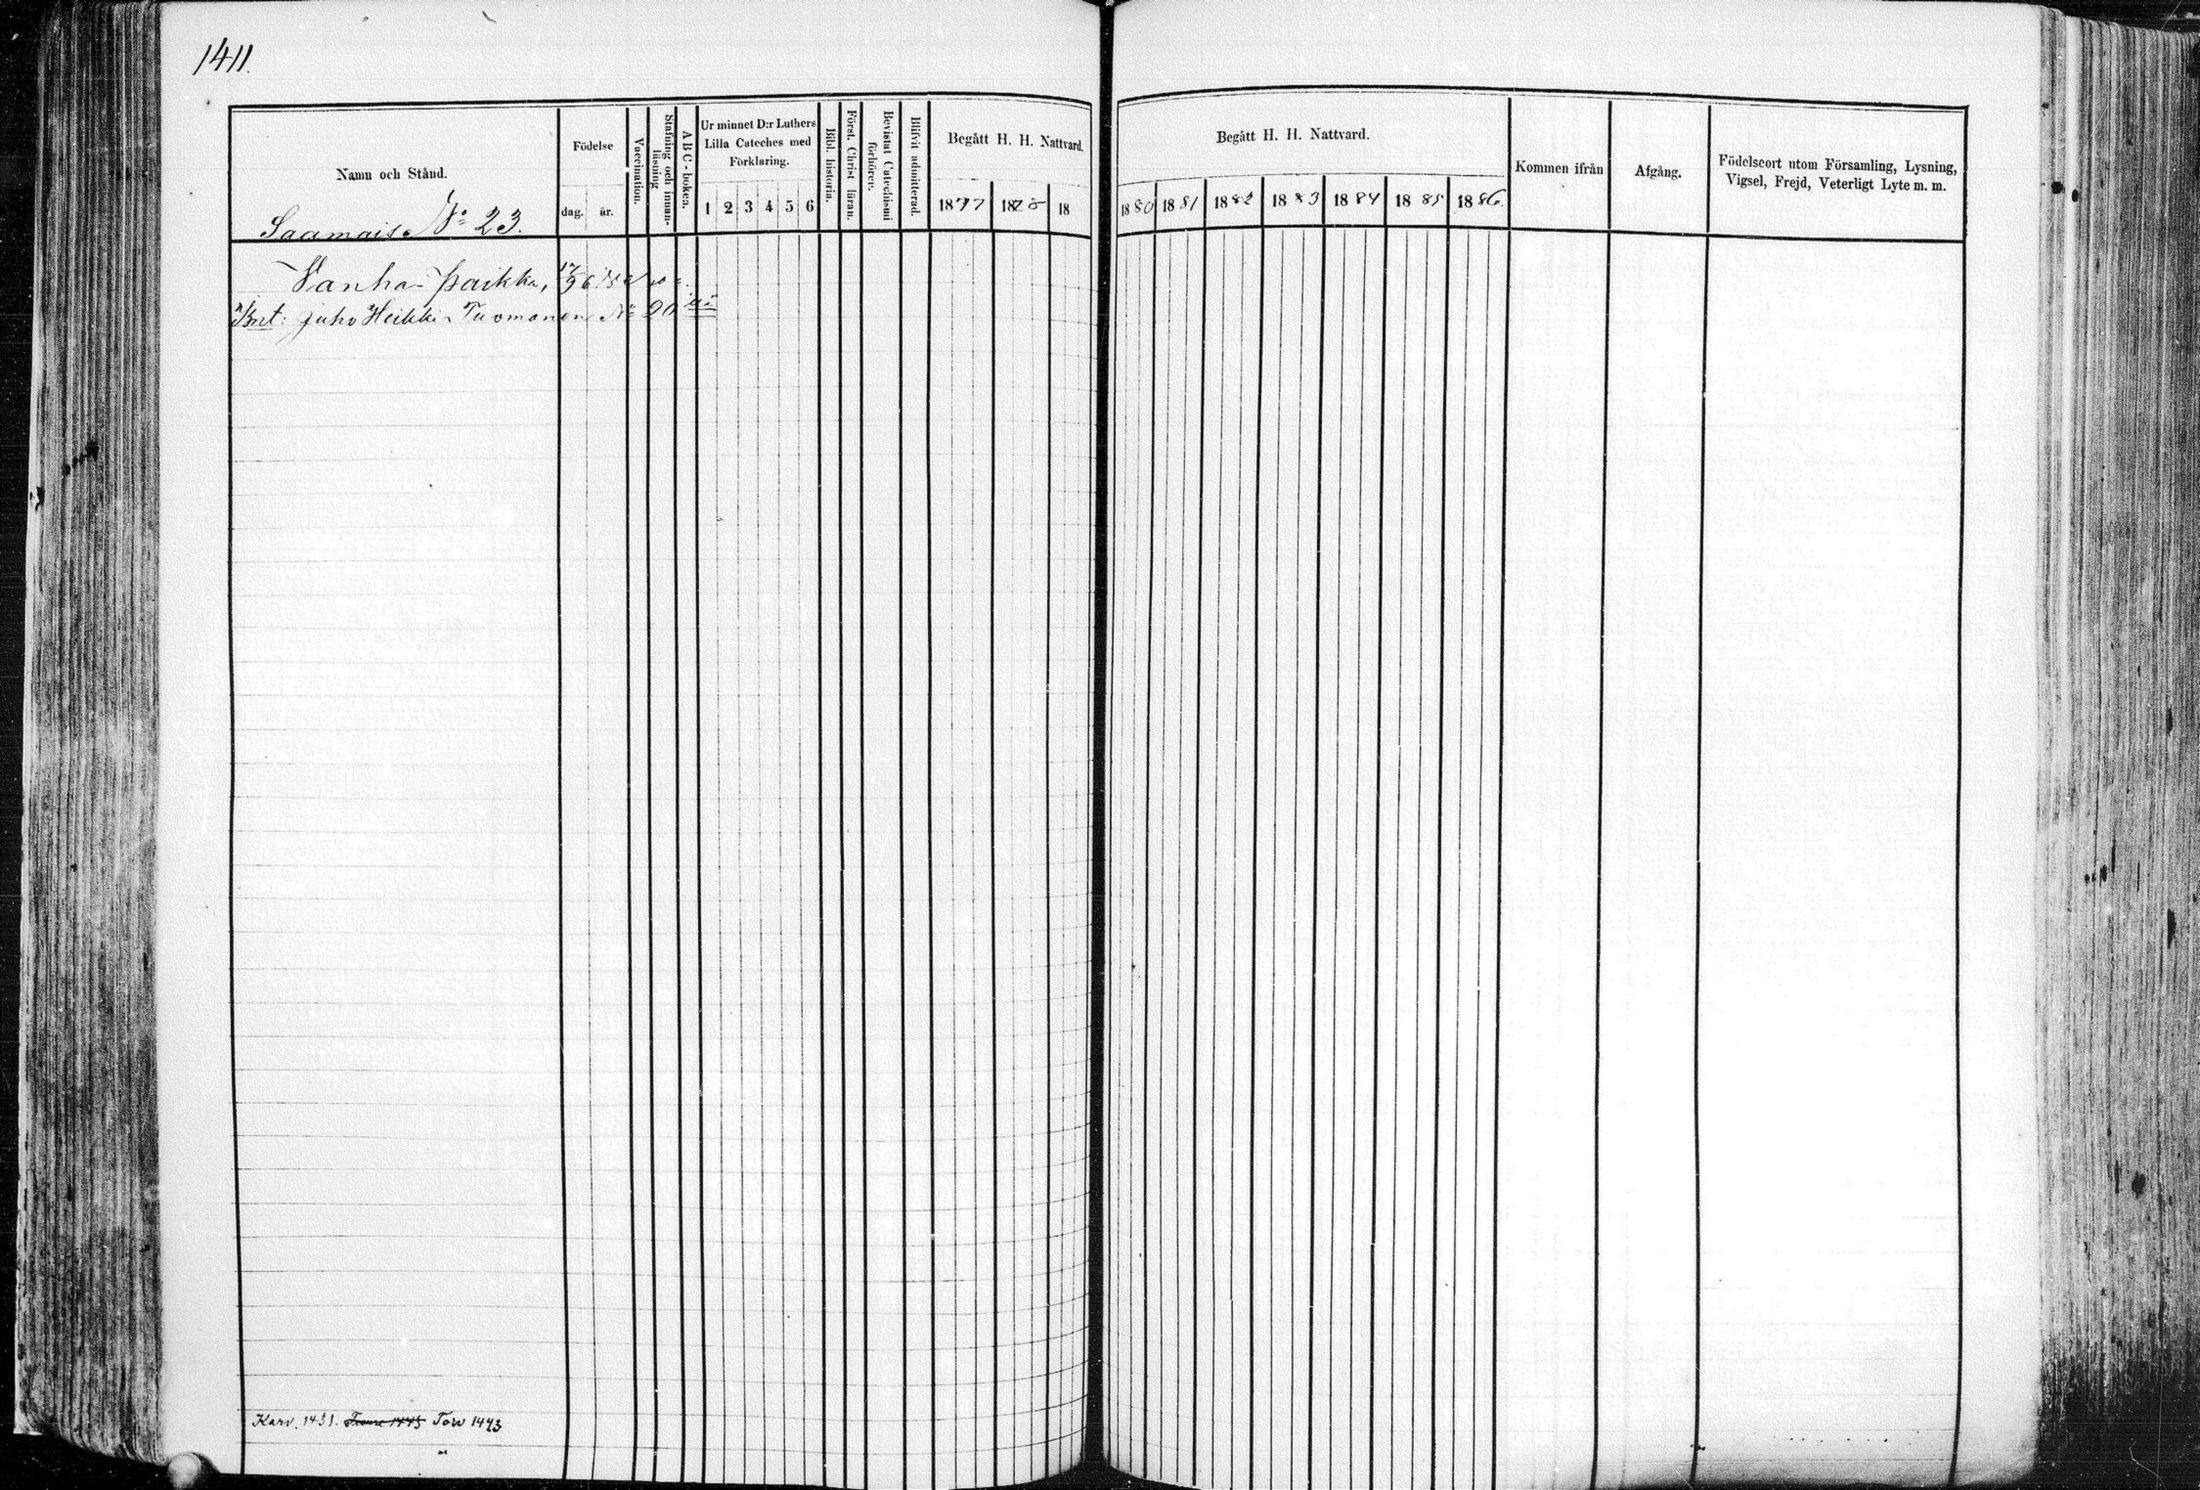 1411.
Namn och Stånd.
Saamais № 23.
Födelse
dag. år.
Vaccination.
Stafning och innan-
läsning
A B C-boken.
Ur minnet D:r Luthers
Lilla Cateches med
Förklaring.
1 2 3 4 5 6
Bibl. historia.
Först. Christ läran.
Bevistat Catechismi
förhören.
Blifvit admitterad.
Begått H. H. Nattvard.
1877 1878 18
Begått H. H. Nattvard.
1880 1881 1882 1883 1884 1885 1886
Kommen ifrån
Afgång.
Födelseort utom Församling, Lysning,
Vigsel, Frejd, Veterligt Lyte m. m.
Vanha-paikka,
juho Heikki Tuomonen № 20
Karv. 1431. Tow 1443